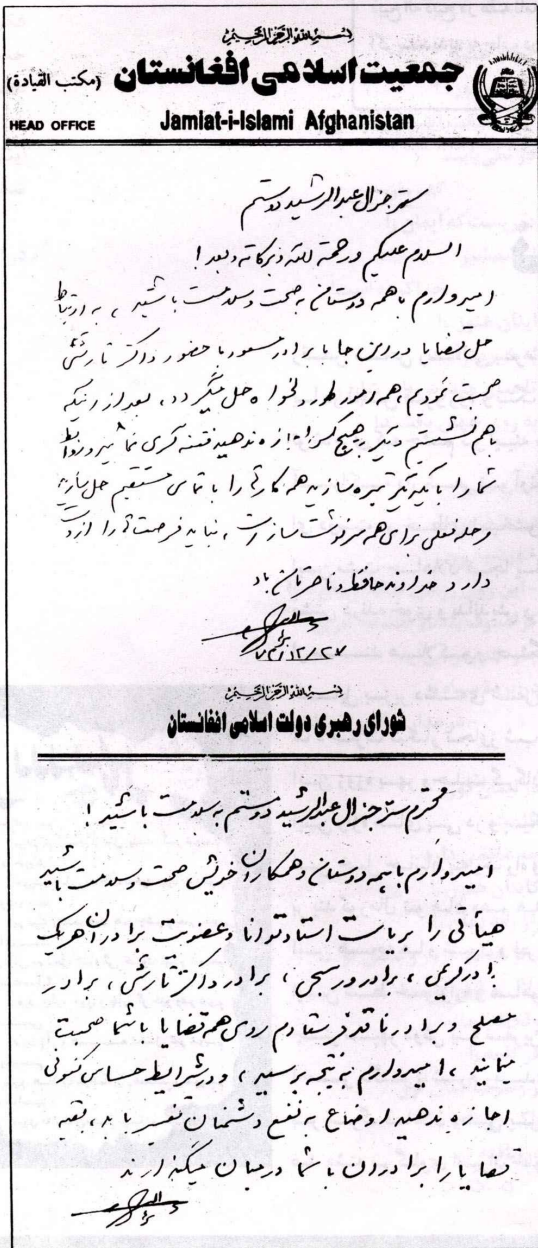 بسم الله الرحمن الرحیم
جمعیت اسلامی افغانستان (مکتب القیادة)
HEAD OFFICE Jamiat-i-Islami Afghanistan
ستر جنرال عبدالرشید دوستم
السلام علیکم ورحمة الله وبرکاته وبعد!
امیدوارم باهمه دوستان به صحت وسلامت باشید، به ارتباط
حل قضایا در این جا با برادر مسعود با حضور داکتر تارشی
صحبت نمودیم، همه امور طور دلخواه حل میگردد، بعد از اینکه
باهم نشستیم دیگر هیچ کس را اجازه ندهید فتنه گری نماید وروابط
شما را با یکدیگر تیره سازد همه کارها را با تماس مستقیم حل سازید
مرحله فعلی برای همه سرنوشت ساز است، نباید فرصت ها را از دست
داد خداوند حافظ وناصرتان باد
۷۲/۱۲/۲۷
بسم الله الرحمن الرحیم
شورای رهبری دولت اسلامی افغانستان
محترم ستر جنرال عبدالرشید دوستم به سلامت باشید!
امیدوارم باهمه دوستان وهمکاران خویش صحت وسلامت باشید
هیأتی را بریاست استاد توانا وعضویت برادران هریک
برادر کریمی، برادر ، برادر داکتر تارشی، برادر
مصلح وبرادر ناقد فرستادم روی همه قضایا باشما صحبت
مینمایند، امیدوارم به نتیجه برسید، ودرشرایط حساس کنونی
اجازه ندهید اوضاع به نفع دشمنان تغییر یابد، بقیه
قضایا را برادران با شما درمیان میگذارند